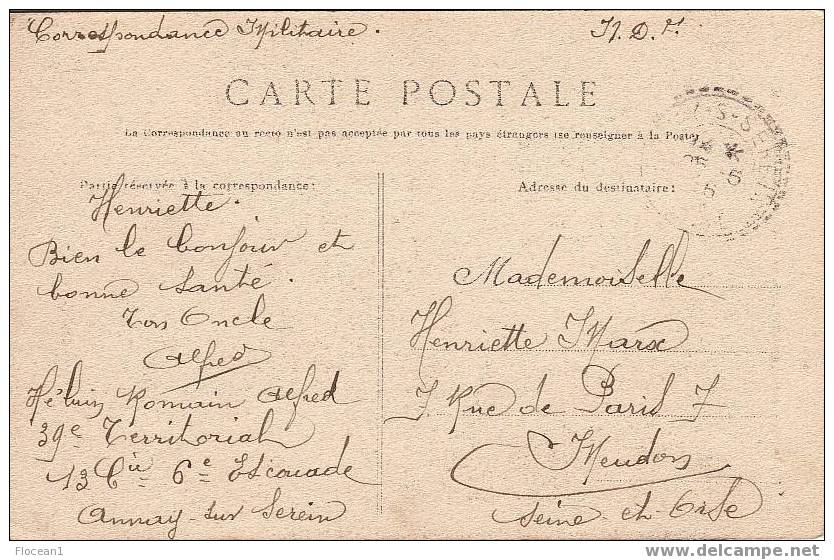 Correspondance Militaire.
CARTE POSTALE
La Correspondance au recto n'est pas acceptée par tous les pays étrangers (se renseigner à la Poste)
Partie réservée à la correspondance:
Henriette.
Bien le bonjour et
bonne santé.
Ton Oncle
Alfred
Romain Alfred
39e Territorial
13 Cie 6e Escouade
Annay-sur Serein
Adresse du destinataire:
Mademoiselle
Henriette Marx
7 Rue de Paris 7
Meudon
Seine et Oise
Flocean1
www.delcampe.net